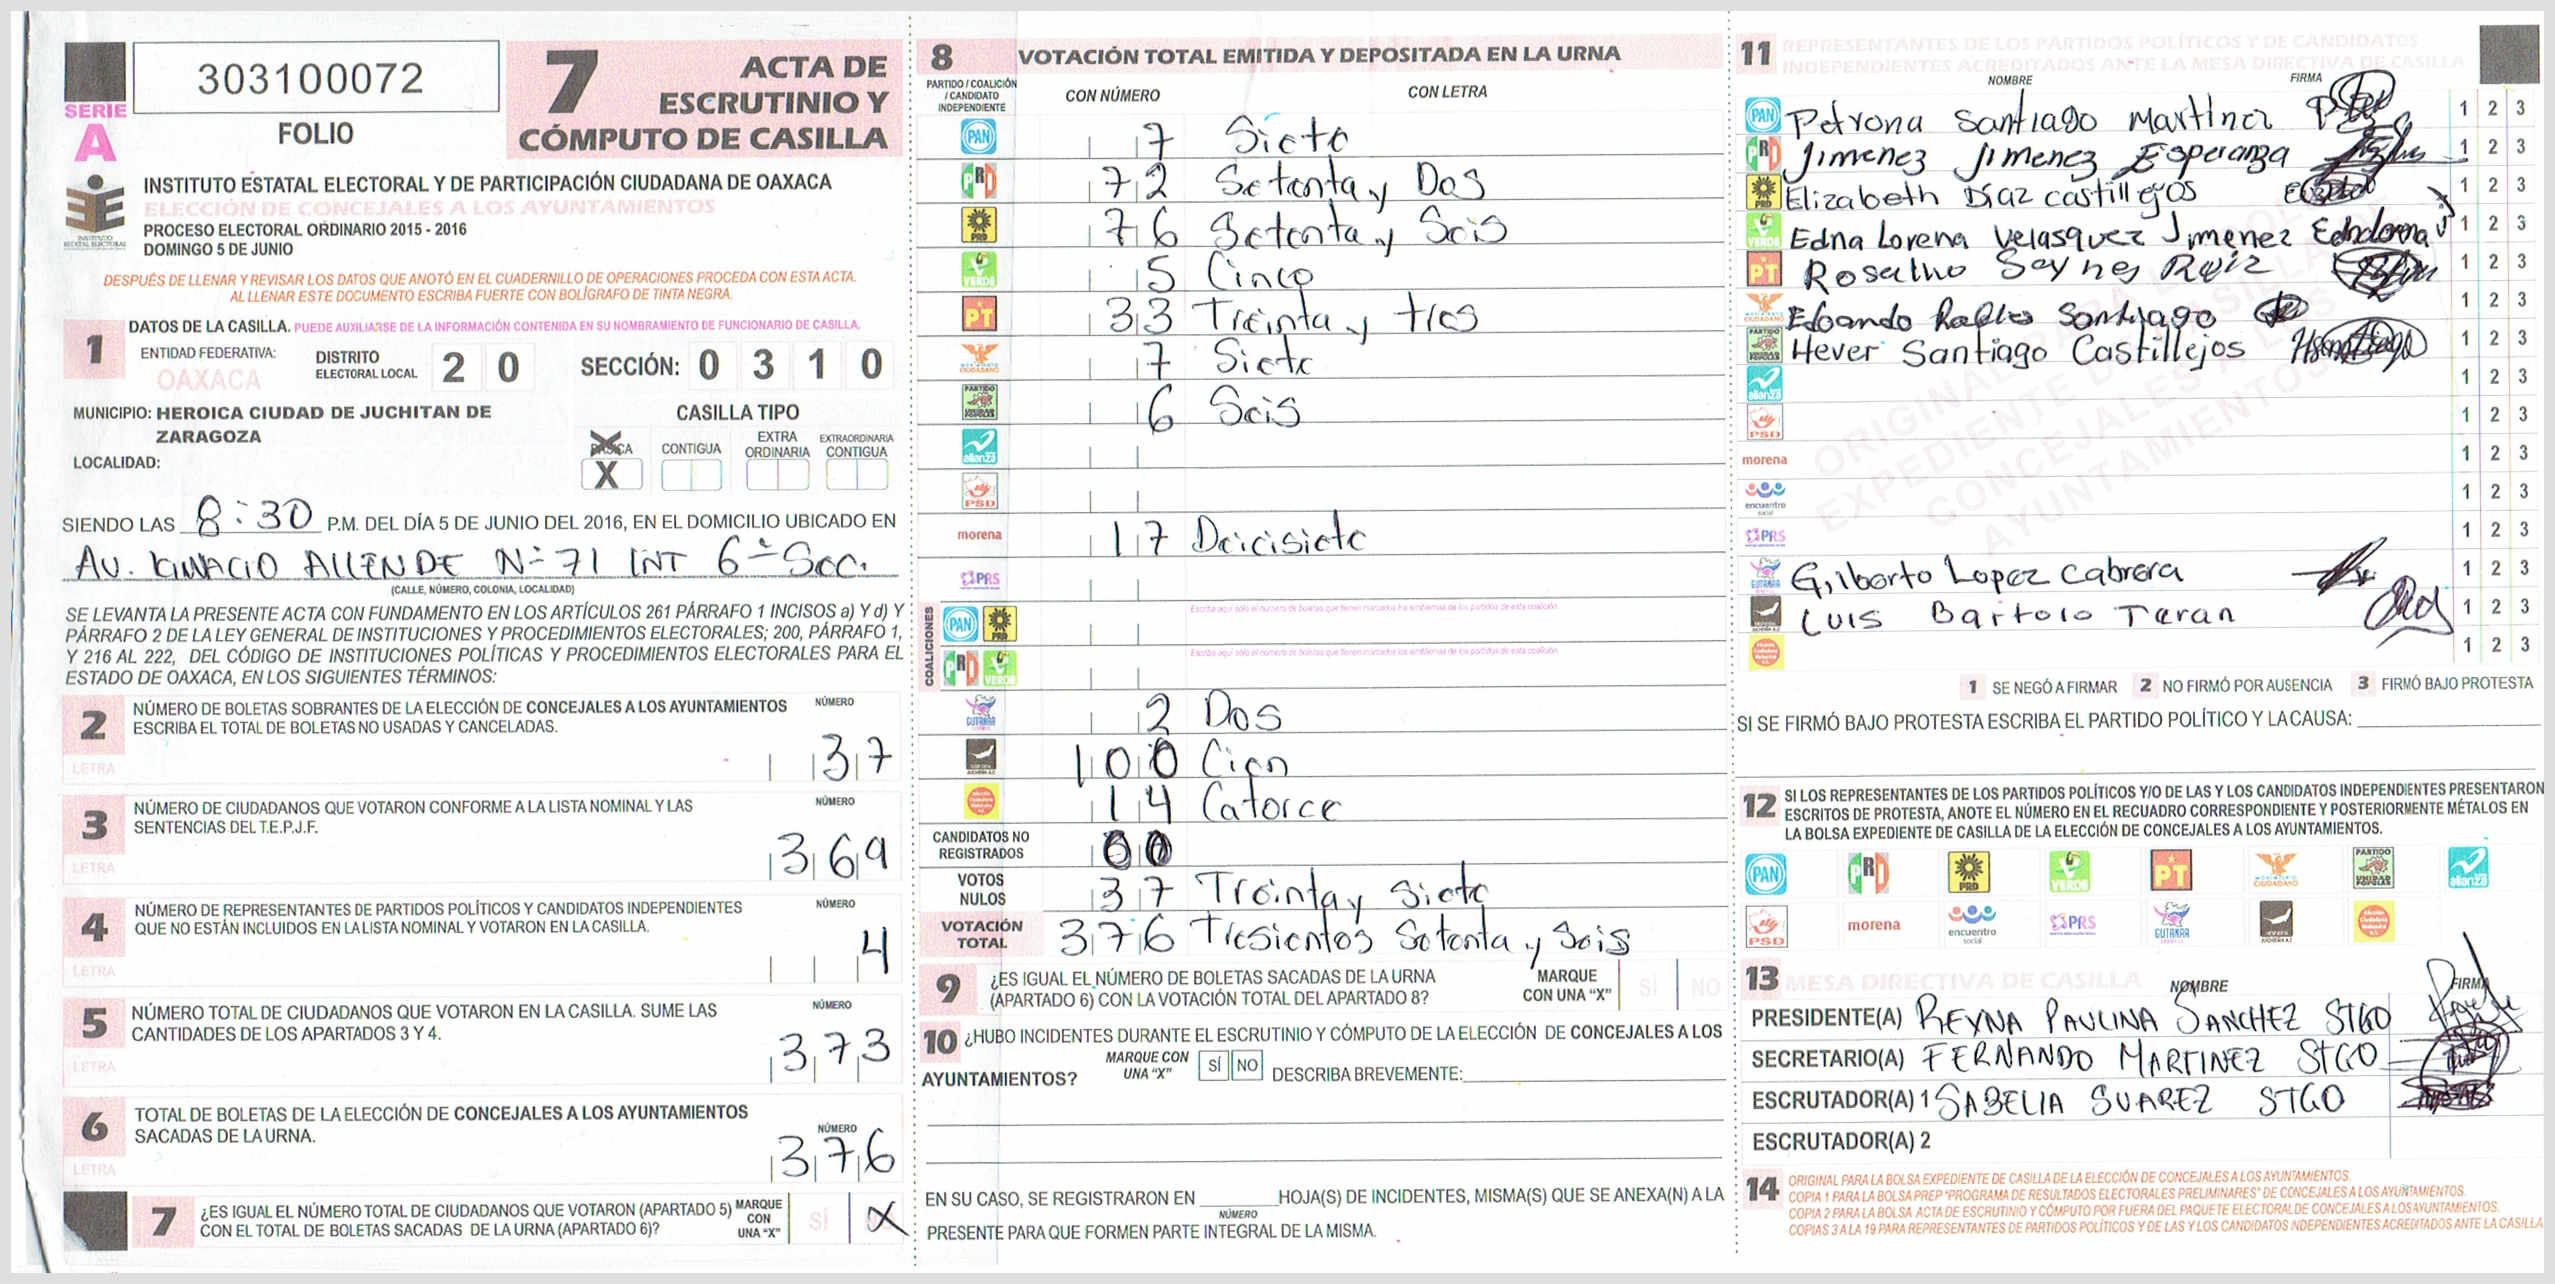 SERIE
A
303100072
FOLIO
7 ACTA DE
ESCRUTINIO Y
CÓMPUTO DE CASILLA
INSTITUTO ESTATAL ELECTORAL Y DE PARTICIPACIÓN CIUDADANA DE OAXACA
ELECCIÓN DE CONCEJALES A LOS AYUNTAMIENTOS
PROCESO ELECTORAL ORDINARIO 2015 - 2016
DOMINGO 5 DE JUNIO
DESPUÉS DE LLENAR Y REVISAR LOS DATOS QUE ANOTÓ EN EL CUADERNILLO DE OPERACIONES PROCEDA CON ESTA ACTA.
AL LLENAR ESTE DOCUMENTO ESCRIBA FUERTE CON BOLÍGRAFO DE TINTA NEGRA.
1 DATOS DE LA CASILLA. PUEDE AUXILIARSE DE LA INFORMACIÓN CONTENIDA EN SU NOMBRAMIENTO DE FUNCIONARIO DE CASILLA.
ENTIDAD FEDERATIVA: OAXACA
DISTRITO ELECTORAL LOCAL 2 0
SECCIÓN: 0 3 1 0
MUNICIPIO: HEROICA CIUDAD DE JUCHITAN DE
ZARAGOZA
LOCALIDAD:
CASILLA TIPO
BÁSICA CONTIGUA EXTRA ORDINARIA EXTRAORDINARIA CONTIGUA
X
SIENDO LAS 8:30 P.M. DEL DÍA 5 DE JUNIO DEL 2016, EN EL DOMICILIO UBICADO EN
AV. IGNACIO ALLENDE Nº 71 INT 6ª Sec.
(CALLE, NÚMERO, COLONIA, LOCALIDAD)
SE LEVANTA LA PRESENTE ACTA CON FUNDAMENTO EN LOS ARTÍCULOS 261 PÁRRAFO 1 INCISOS a) Y d) Y
PÁRRAFO 2 DE LA LEY GENERAL DE INSTITUCIONES Y PROCEDIMIENTOS ELECTORALES; 200, PÁRRAFO 1,
Y 216 AL 222, DEL CÓDIGO DE INSTITUCIONES POLÍTICAS Y PROCEDIMIENTOS ELECTORALES PARA EL
ESTADO DE OAXACA, EN LOS SIGUIENTES TÉRMINOS:
2 NÚMERO DE BOLETAS SOBRANTES DE LA ELECCIÓN DE CONCEJALES A LOS AYUNTAMIENTOS NÚMERO
ESCRIBA EL TOTAL DE BOLETAS NO USADAS Y CANCELADAS.
LETRA 37
3 NÚMERO DE CIUDADANOS QUE VOTARON CONFORME A LA LISTA NOMINAL Y LAS NÚMERO
SENTENCIAS DEL T.E.P.J.F.
LETRA 369
4 NÚMERO DE REPRESENTANTES DE PARTIDOS POLÍTICOS Y CANDIDATOS INDEPENDIENTES NÚMERO
QUE NO ESTÁN INCLUIDOS EN LA LISTA NOMINAL Y VOTARON EN LA CASILLA.
LETRA 4
5 NÚMERO TOTAL DE CIUDADANOS QUE VOTARON EN LA CASILLA. SUME LAS NÚMERO
CANTIDADES DE LOS APARTADOS 3 Y 4.
LETRA 373
6 TOTAL DE BOLETAS DE LA ELECCIÓN DE CONCEJALES A LOS AYUNTAMIENTOS
SACADAS DE LA URNA. NÚMERO
LETRA 376
7 ¿ES IGUAL EL NÚMERO TOTAL DE CIUDADANOS QUE VOTARON (APARTADO 5)
CON EL TOTAL DE BOLETAS SACADAS DE LA URNA (APARTADO 6)?
MARQUE CON UNA "X" SÍ X
8 VOTACIÓN TOTAL EMITIDA Y DEPOSITADA EN LA URNA
PARTIDO / COALICIÓN / CANDIDATO INDEPENDIENTE CON NÚMERO CON LETRA
PAN 7 Siete
PRI 72 Setenta y Dos
PRD 76 Setenta y Seis
VERDE 5 Cinco
PT 33 Treinta y tres
MOVIMIENTO CIUDADANO 7 Siete
PARTIDO UNIDAD POPULAR 6 Seis
alianza
PSD
morena 17 Deicisiete
PRS
COALICIONES
PAN PRD Escriba aquí sólo el número de boletas que tienen marcados los emblemas de los partidos de esta coalición
PRI VERDE Escriba aquí sólo el número de boletas que tienen marcados los emblemas de los partidos de esta coalición
2 Dos
100 Cien
14 Catorce
CANDIDATOS NO REGISTRADOS 00
VOTOS NULOS 37 Treinta y Siete
VOTACIÓN TOTAL 376 Tresientos Setenta y Seis
9 ¿ES IGUAL EL NÚMERO DE BOLETAS SACADAS DE LA URNA
(APARTADO 6) CON LA VOTACIÓN TOTAL DEL APARTADO 8?
MARQUE CON UNA "X" SÍ NO
10 ¿HUBO INCIDENTES DURANTE EL ESCRUTINIO Y CÓMPUTO DE LA ELECCIÓN DE CONCEJALES A LOS
AYUNTAMIENTOS? MARQUE CON UNA "X" SÍ NO DESCRIBA BREVEMENTE:
EN SU CASO, SE REGISTRARON EN HOJA(S) DE INCIDENTES, MISMA(S) QUE SE ANEXA(N) A LA
NÚMERO
PRESENTE PARA QUE FORMEN PARTE INTEGRAL DE LA MISMA.
11 REPRESENTANTES DE LOS PARTIDOS POLÍTICOS Y DE CANDIDATOS
INDEPENDIENTES ACREDITADOS ANTE LA MESA DIRECTIVA DE CASILLA
NOMBRE FIRMA
PAN Petrona Santiago Martinez 1 2 3
PRI Jimenez Jimenez Esperanza 1 2 3
PRD Elizabeth Díaz castillejos 1 2 3
VERDE Edna Lorena Velasquez Jimenez 1 2 3
PT Rosalino 1 2 3
Santiago 1 2 3
Hever Santiago Castillejos 1 2 3
alianza 1 2 3
PSD 1 2 3
morena 1 2 3
encuentro social 1 2 3
PRS 1 2 3
Gilberto Lopez Cabrera 1 2 3
Luis Bartolo Teran 1 2 3
1 2 3
ORIGINAL PARA LA BOLSA
EXPEDIENTE DE CASILLA DE
CONCEJALES A LOS
AYUNTAMIENTOS
1 SE NEGÓ A FIRMAR 2 NO FIRMÓ POR AUSENCIA 3 FIRMÓ BAJO PROTESTA
SI SE FIRMÓ BAJO PROTESTA ESCRIBA EL PARTIDO POLÍTICO Y LA CAUSA:
12 SI LOS REPRESENTANTES DE LOS PARTIDOS POLÍTICOS Y/O DE LAS Y LOS CANDIDATOS INDEPENDIENTES PRESENTARON
ESCRITOS DE PROTESTA, ANOTE EL NÚMERO EN EL RECUADRO CORRESPONDIENTE Y POSTERIORMENTE MÉTALOS EN
LA BOLSA EXPEDIENTE DE CASILLA DE LA ELECCIÓN DE CONCEJALES A LOS AYUNTAMIENTOS.
PAN PRI PRD VERDE PT MOVIMIENTO CIUDADANO PARTIDO UNIDAD POPULAR alianza
PSD morena encuentro social PRS
13 MESA DIRECTIVA DE CASILLA
NOMBRE FIRMA
PRESIDENTE(A) REYNA PAULINA SANCHEZ STGO
SECRETARIO(A) FERNANDO MARTINEZ STGO
ESCRUTADOR(A) 1 SABELIA SUAREZ STGO
ESCRUTADOR(A) 2
14 ORIGINAL PARA LA BOLSA EXPEDIENTE DE CASILLA DE LA ELECCIÓN DE CONCEJALES A LOS AYUNTAMIENTOS.
COPIA 1 PARA LA BOLSA PREP "PROGRAMA DE RESULTADOS ELECTORALES PRELIMINARES" DE CONCEJALES A LOS AYUNTAMIENTOS.
COPIA 2 PARA LA BOLSA ACTA DE ESCRUTINIO Y CÓMPUTO POR FUERA DEL PAQUETE ELECTORAL DE CONCEJALES A LOS AYUNTAMIENTOS.
COPIAS 3 A LA 19 PARA REPRESENTANTES DE PARTIDOS POLÍTICOS Y DE LAS Y LOS CANDIDATOS INDEPENDIENTES ACREDITADOS ANTE LA CASILLA